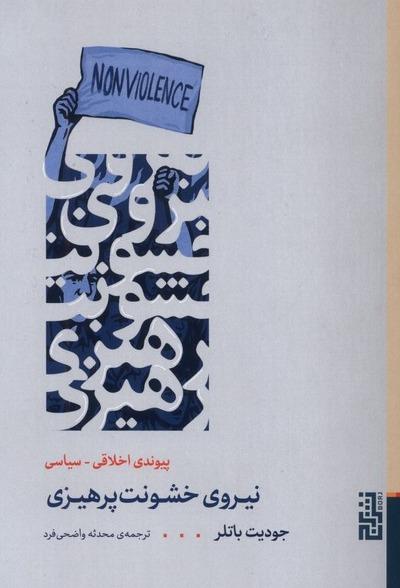 NONVIOLENCE
نیروی
خشونت
پرهیزی
پیوندی اخلاقی - سیاسی
نیروی خشونت‌پرهیزی
جودیت باتلر ... ترجمه‌ی محدثه واضحی‌فرد
نشر برج
BORJ